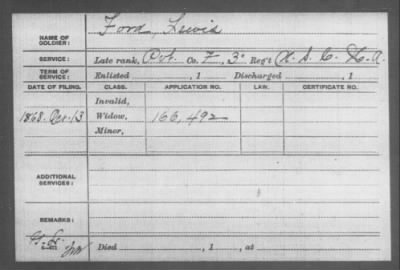 NAME OF SOLDIER: Ford, Lewis
SERVICE: Late rank, Pvt. Co. F, 3" Reg't U. S. C. H. A.
TERM OF SERVICE: Enlisted , 1 Discharged , 1
DATE OF FILING. CLASS. APPLICATION NO. LAW. CERTIFICATE NO.
Invalid,
1868. Oct. 13 Widow, 166,492
Minor,
ADDITIONAL SERVICES:
REMARKS:
Died , 1 , at